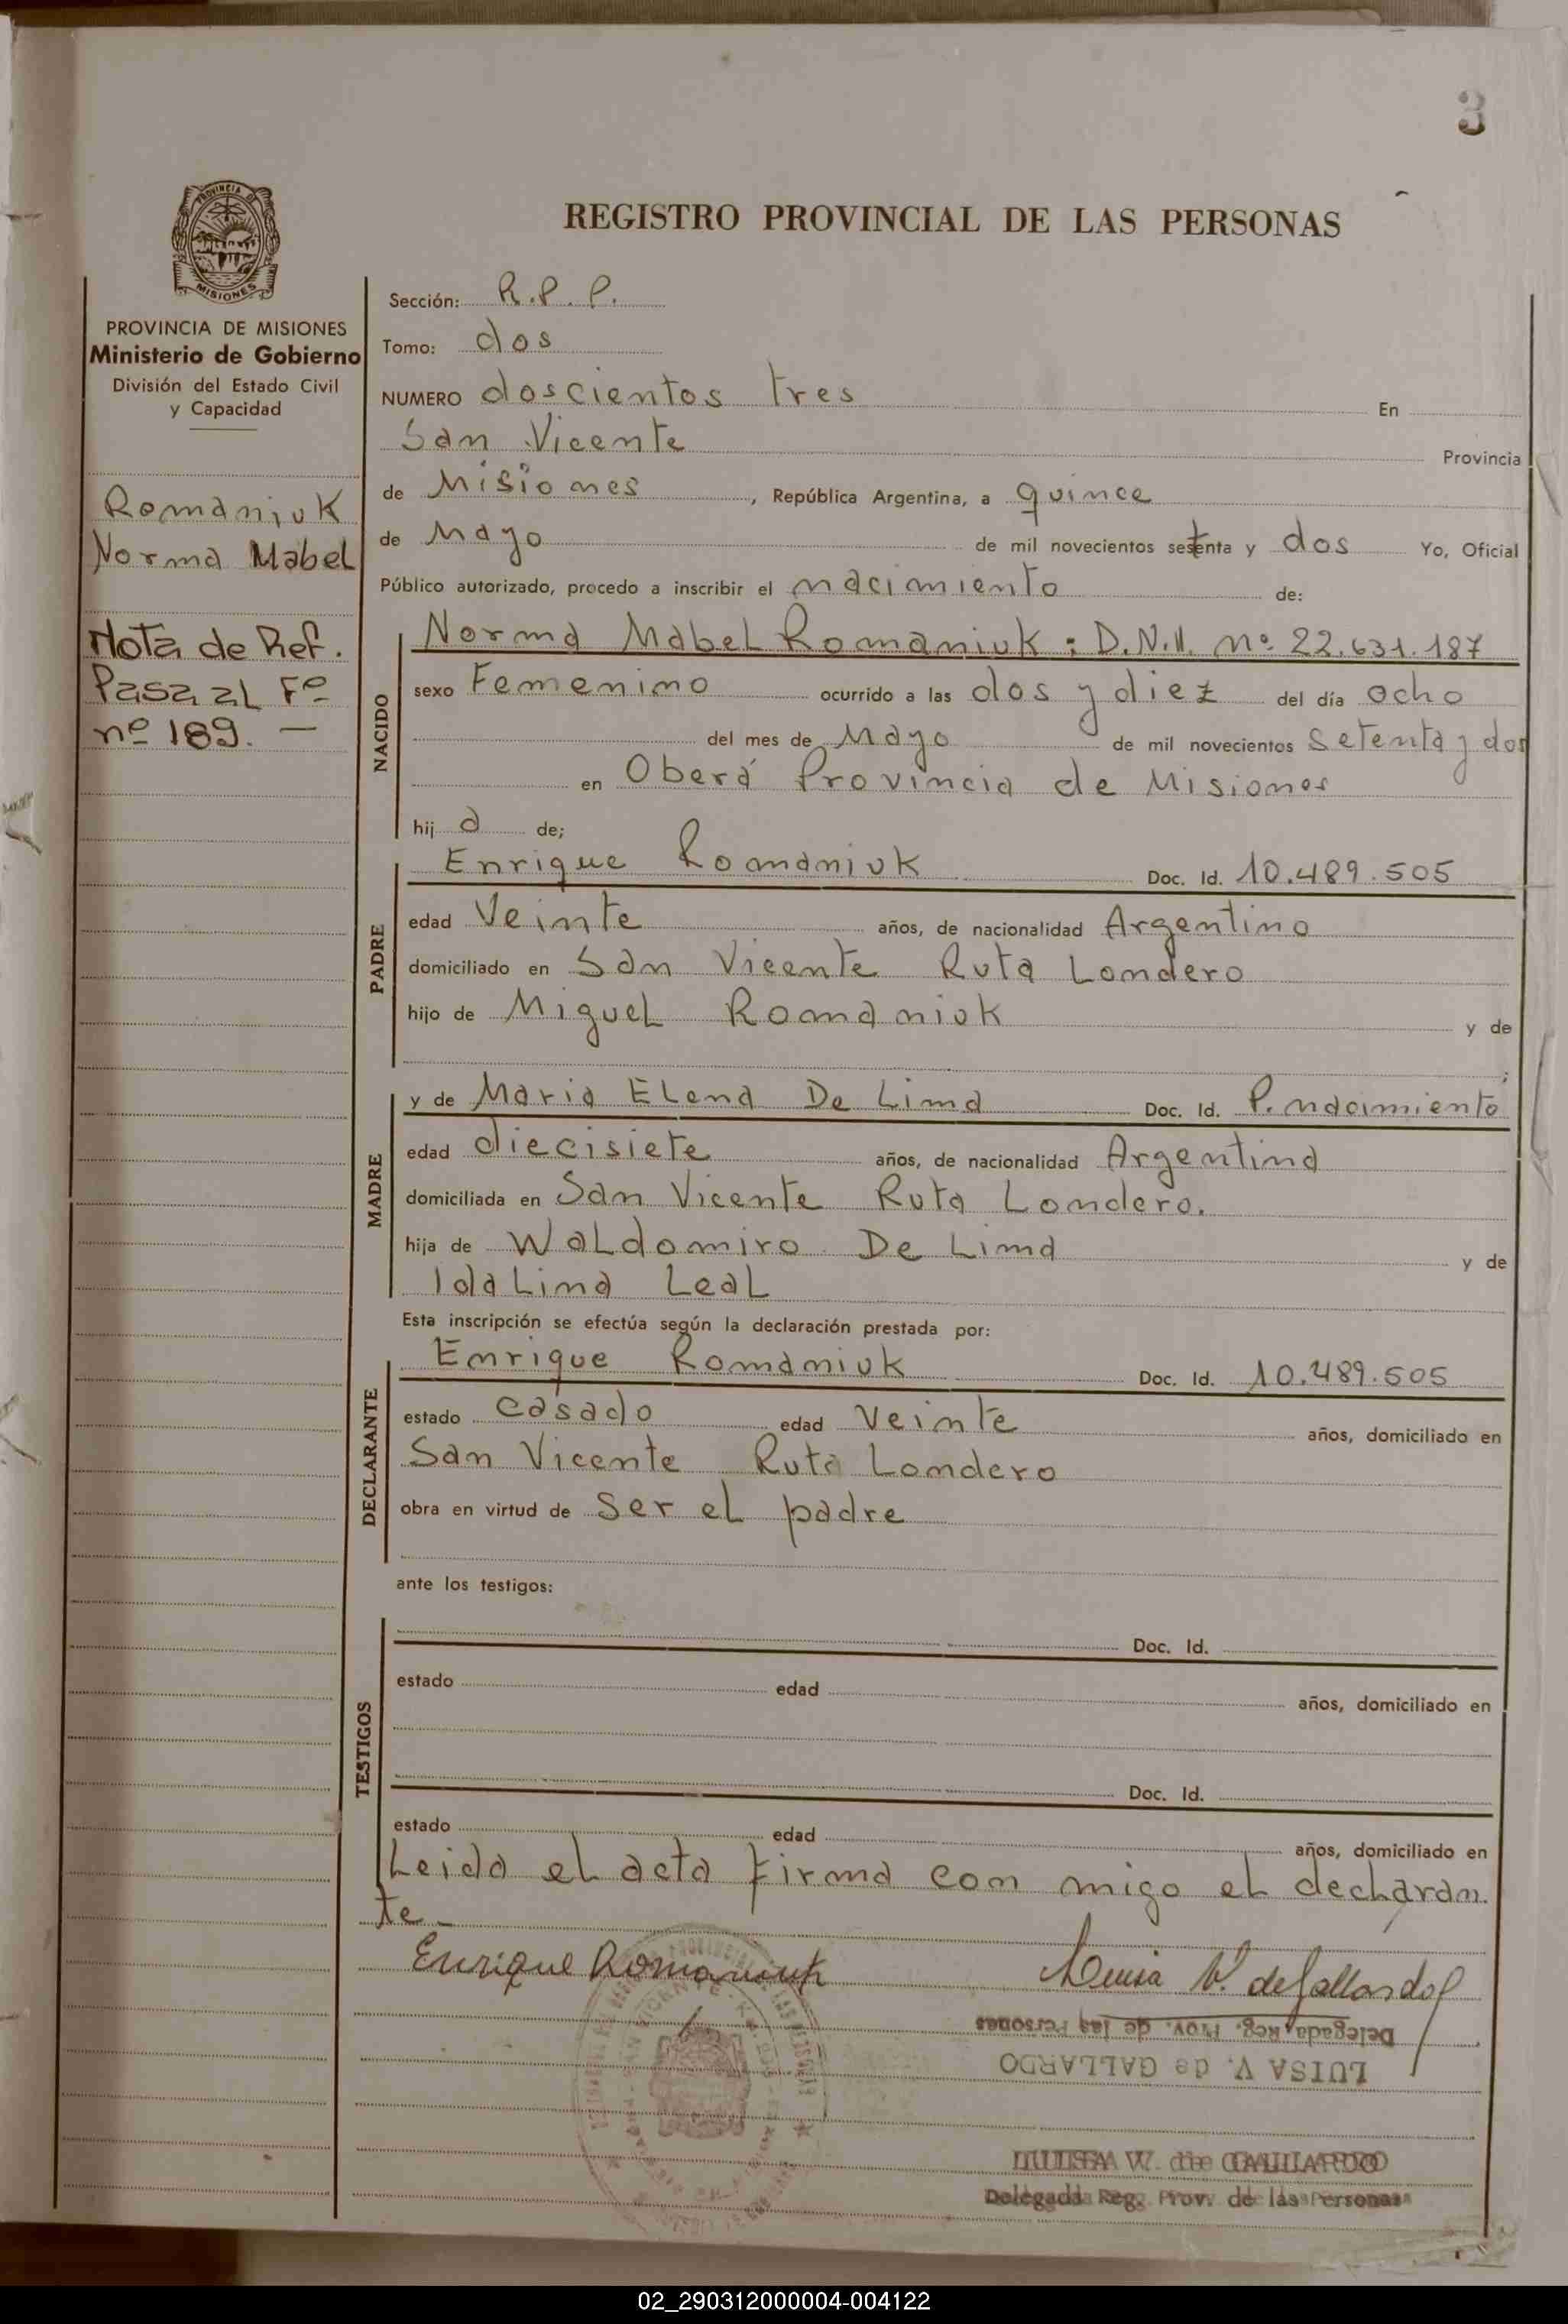 3
REGISTRO PROVINCIAL DE LAS PERSONAS
PROVINCIA DE
MISIONES
PROVINCIA DE MISIONES
Ministerio de Gobierno
División del Estado Civil
y Capacidad
Romaniuk
Norma Mabel
Nota de Ref.
Pasa al Fº
nº 189. —
Sección: R.P.P.
Tomo: dos
NUMERO doscientos tres En
San Vicente Provincia
de Misiones, República Argentina, a quince
de Mayo de mil novecientos setenta y dos Yo, Oficial
Público autorizado, procedo a inscribir el nacimiento de:
NACIDO
Norma Mabel Romaniuk : D.N.I. nº 22.631.187
sexo Femenino ocurrido a las dos y diez del día ocho
del mes de Mayo de mil novecientos setenta y dos
en Oberá Provincia de Misiones
hij a de;
PADRE
Enrique Romaniuk Doc. Id. 10.489.505
edad Veinte años, de nacionalidad Argentino
domiciliado en San Vicente Ruta Londero
hijo de Miguel Romaniuk y de
;
MADRE
y de Maria Elena De Lima Doc. Id. P. nacimiento
edad diecisiete años, de nacionalidad Argentina
domiciliada en San Vicente Ruta Londero.
hija de Waldomiro De Lima y de
Idalina Leal
Esta inscripción se efectúa según la declaración prestada por:
DECLARANTE
Enrique Romaniuk Doc. Id. 10.489.505
estado casado edad Veinte años, domiciliado en
San Vicente Ruta Londero
obra en virtud de ser el padre
ante los testigos:
TESTIGOS
Doc. Id.
estado edad años, domiciliado en
Doc. Id.
estado edad años, domiciliado en
Leida el acta firma con migo el declaran
te_
Enrique Romaniuk Luisa V. de Gallardo
Delegada Reg. Prov. de las Personas
LUISA V. de GALLARDO
LUISA V. de GALLARDO
Delegada Reg. Prov. de las Personas
02_290312000004-004122